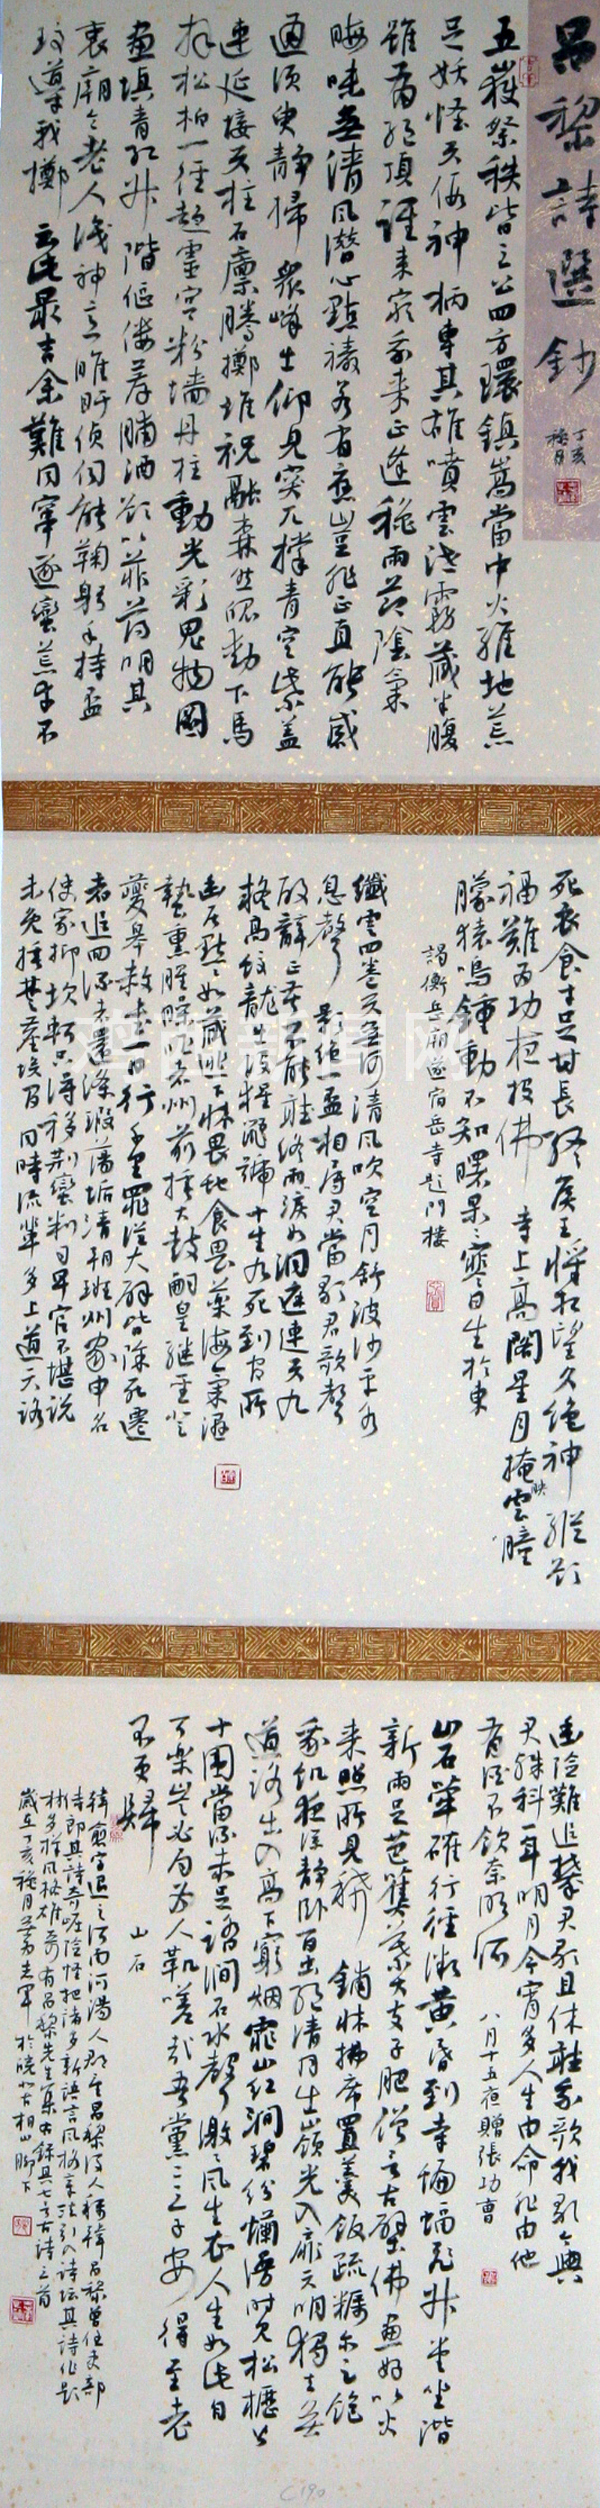 昌黎詩選鈔
丁亥
秋月
五嶽祭秩皆三公四方環鎮嵩當中火維地荒
足妖怪天假神柄專其雄噴雲泄霧藏半腹
雖有絕頂誰來窮我来正逢秋雨節陰氣
晦昧無清風潛心默禱若有應豈非正直能感
通須臾静掃眾峰出仰見突兀撐青空紫蓋
連延接天柱石廩騰擲堆祝融森然魄動下馬
拜松柏一徑趨靈宮粉墻丹柱動光彩鬼物圖
畫填青紅升階傴僂薦脯酒欲以菲薄明其
衷廟令老人識神意睢盱偵伺能鞠躬手持盃
玟導我擲云此最吉余難同竄逐蠻荒幸不
死衣食才足甘長終侯王將相望久絕神縱欲
福難為功夜投佛寺上高閣星月掩映雲曈
朦猿鳴鍾動不知曙杲杲寒日生於東
謁衡岳廟遂宿岳寺題門樓
纖雲四卷天無河清風吹空月舒波沙平水
息聲影絕一盃相屬君當歌君歌聲
酸辭正苦不能聽終雨淚如洞庭連天九
疑高蛟龍出没猩鼯號十生九死到官所
幽居默默如藏逃下牀畏蛇食畏藥海氣濕
蟄熏腥臊昨者州前捶大鼓嗣皇繼聖登
夔皋赦書一日行千里罪從大辟皆除死遷
者追回流者還滌瑕蕩垢清朝班州家申名
使家抑坎軻只得移荆蠻判司卑官不堪説
未免捶楚塵埃間同時流輩多上道天路
幽險難追攀君歌且休聽我歌我歌今與
君殊科一年明月今宵多人生由命非由他
有酒不飲奈明何 八月十五夜贈張功曹
山石犖確行徑微黄昏到寺蝙蝠飛升堂坐階
新雨足芭蕉葉大支子肥僧言古壁佛畫好以火
来照所見稀鋪牀拂席置羹飯疏糲亦足飽
我飢夜深静卧百蟲絕清月出嶺光入扉天明獨去無
道路出入高下窮烟霏山紅澗碧紛爛漫時見松櫪皆
十圍當流赤足蹋澗石水聲激激風生衣人生如此自
可樂豈必局束為人鞿嗟哉吾黨二三子安得至老
不更歸 山石
韓愈字退之河南河陽人郡望昌黎後人稱韓昌黎曾任吏部
侍郎其詩奇崛險怪把諸多新語言風格章法引入詩壇其詩作題
材多樣風格雄奇有昌黎先生集録其七言古詩三首
歲在丁亥秋月於古相山脚下